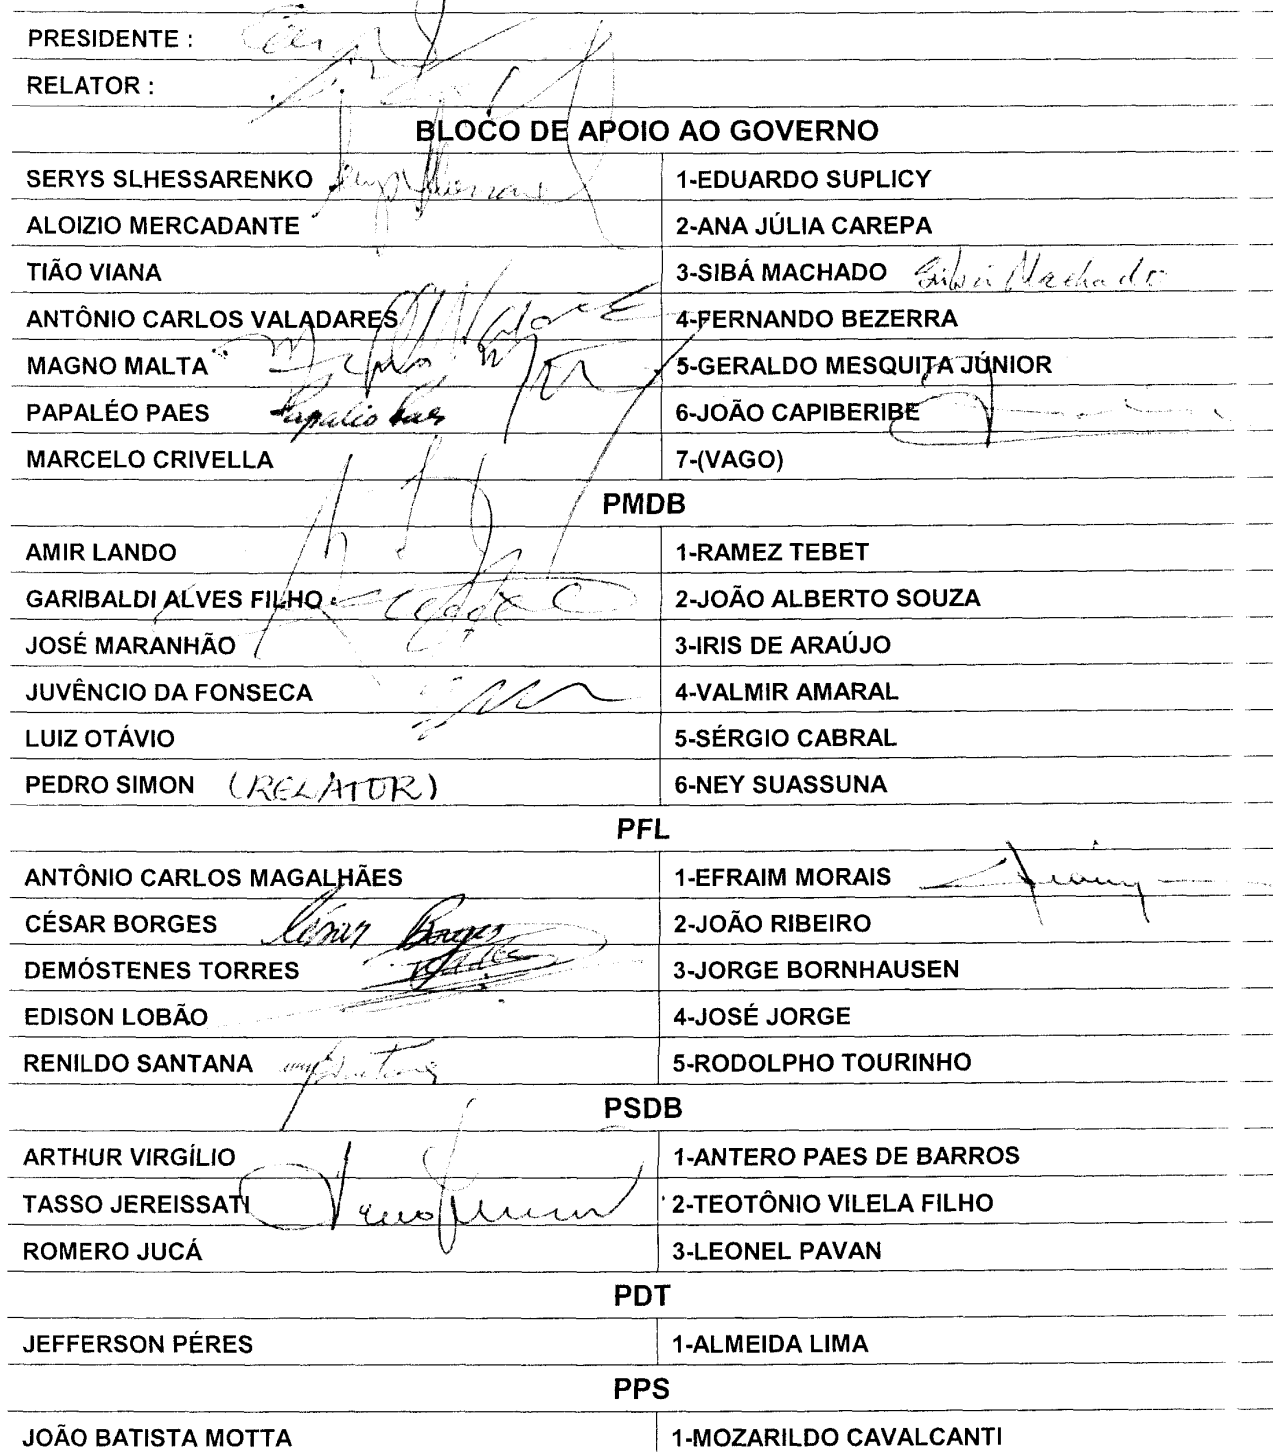 PRESIDENTE :
RELATOR :
BLOCO DE APOIO AO GOVERNO
SERYS SLHESSARENKO 1-EDUARDO SUPLICY
ALOIZIO MERCADANTE 2-ANA JÚLIA CAREPA
TIÃO VIANA 3-SIBÁ MACHADO Sibá Machado
ANTÔNIO CARLOS VALADARES 4-FERNANDO BEZERRA
MAGNO MALTA 5-GERALDO MESQUITA JÚNIOR
PAPALÉO PAES Papaléo Paes 6-JOÃO CAPIBERIBE
MARCELO CRIVELLA 7-(VAGO)
PMDB
AMIR LANDO 1-RAMEZ TEBET
GARIBALDI ALVES FILHO 2-JOÃO ALBERTO SOUZA
JOSÉ MARANHÃO 3-IRIS DE ARAÚJO
JUVÊNCIO DA FONSECA 4-VALMIR AMARAL
LUIZ OTÁVIO 5-SÉRGIO CABRAL
PEDRO SIMON (RELATOR) 6-NEY SUASSUNA
PFL
ANTÔNIO CARLOS MAGALHÃES 1-EFRAIM MORAIS
CÉSAR BORGES César Borges 2-JOÃO RIBEIRO
DEMÓSTENES TORRES 3-JORGE BORNHAUSEN
EDISON LOBÃO 4-JOSÉ JORGE
RENILDO SANTANA 5-RODOLPHO TOURINHO
PSDB
ARTHUR VIRGÍLIO 1-ANTERO PAES DE BARROS
TASSO JEREISSATI 2-TEOTÔNIO VILELA FILHO
ROMERO JUCÁ 3-LEONEL PAVAN
PDT
JEFFERSON PÉRES 1-ALMEIDA LIMA
PPS
JOÃO BATISTA MOTTA 1-MOZARILDO CAVALCANTI